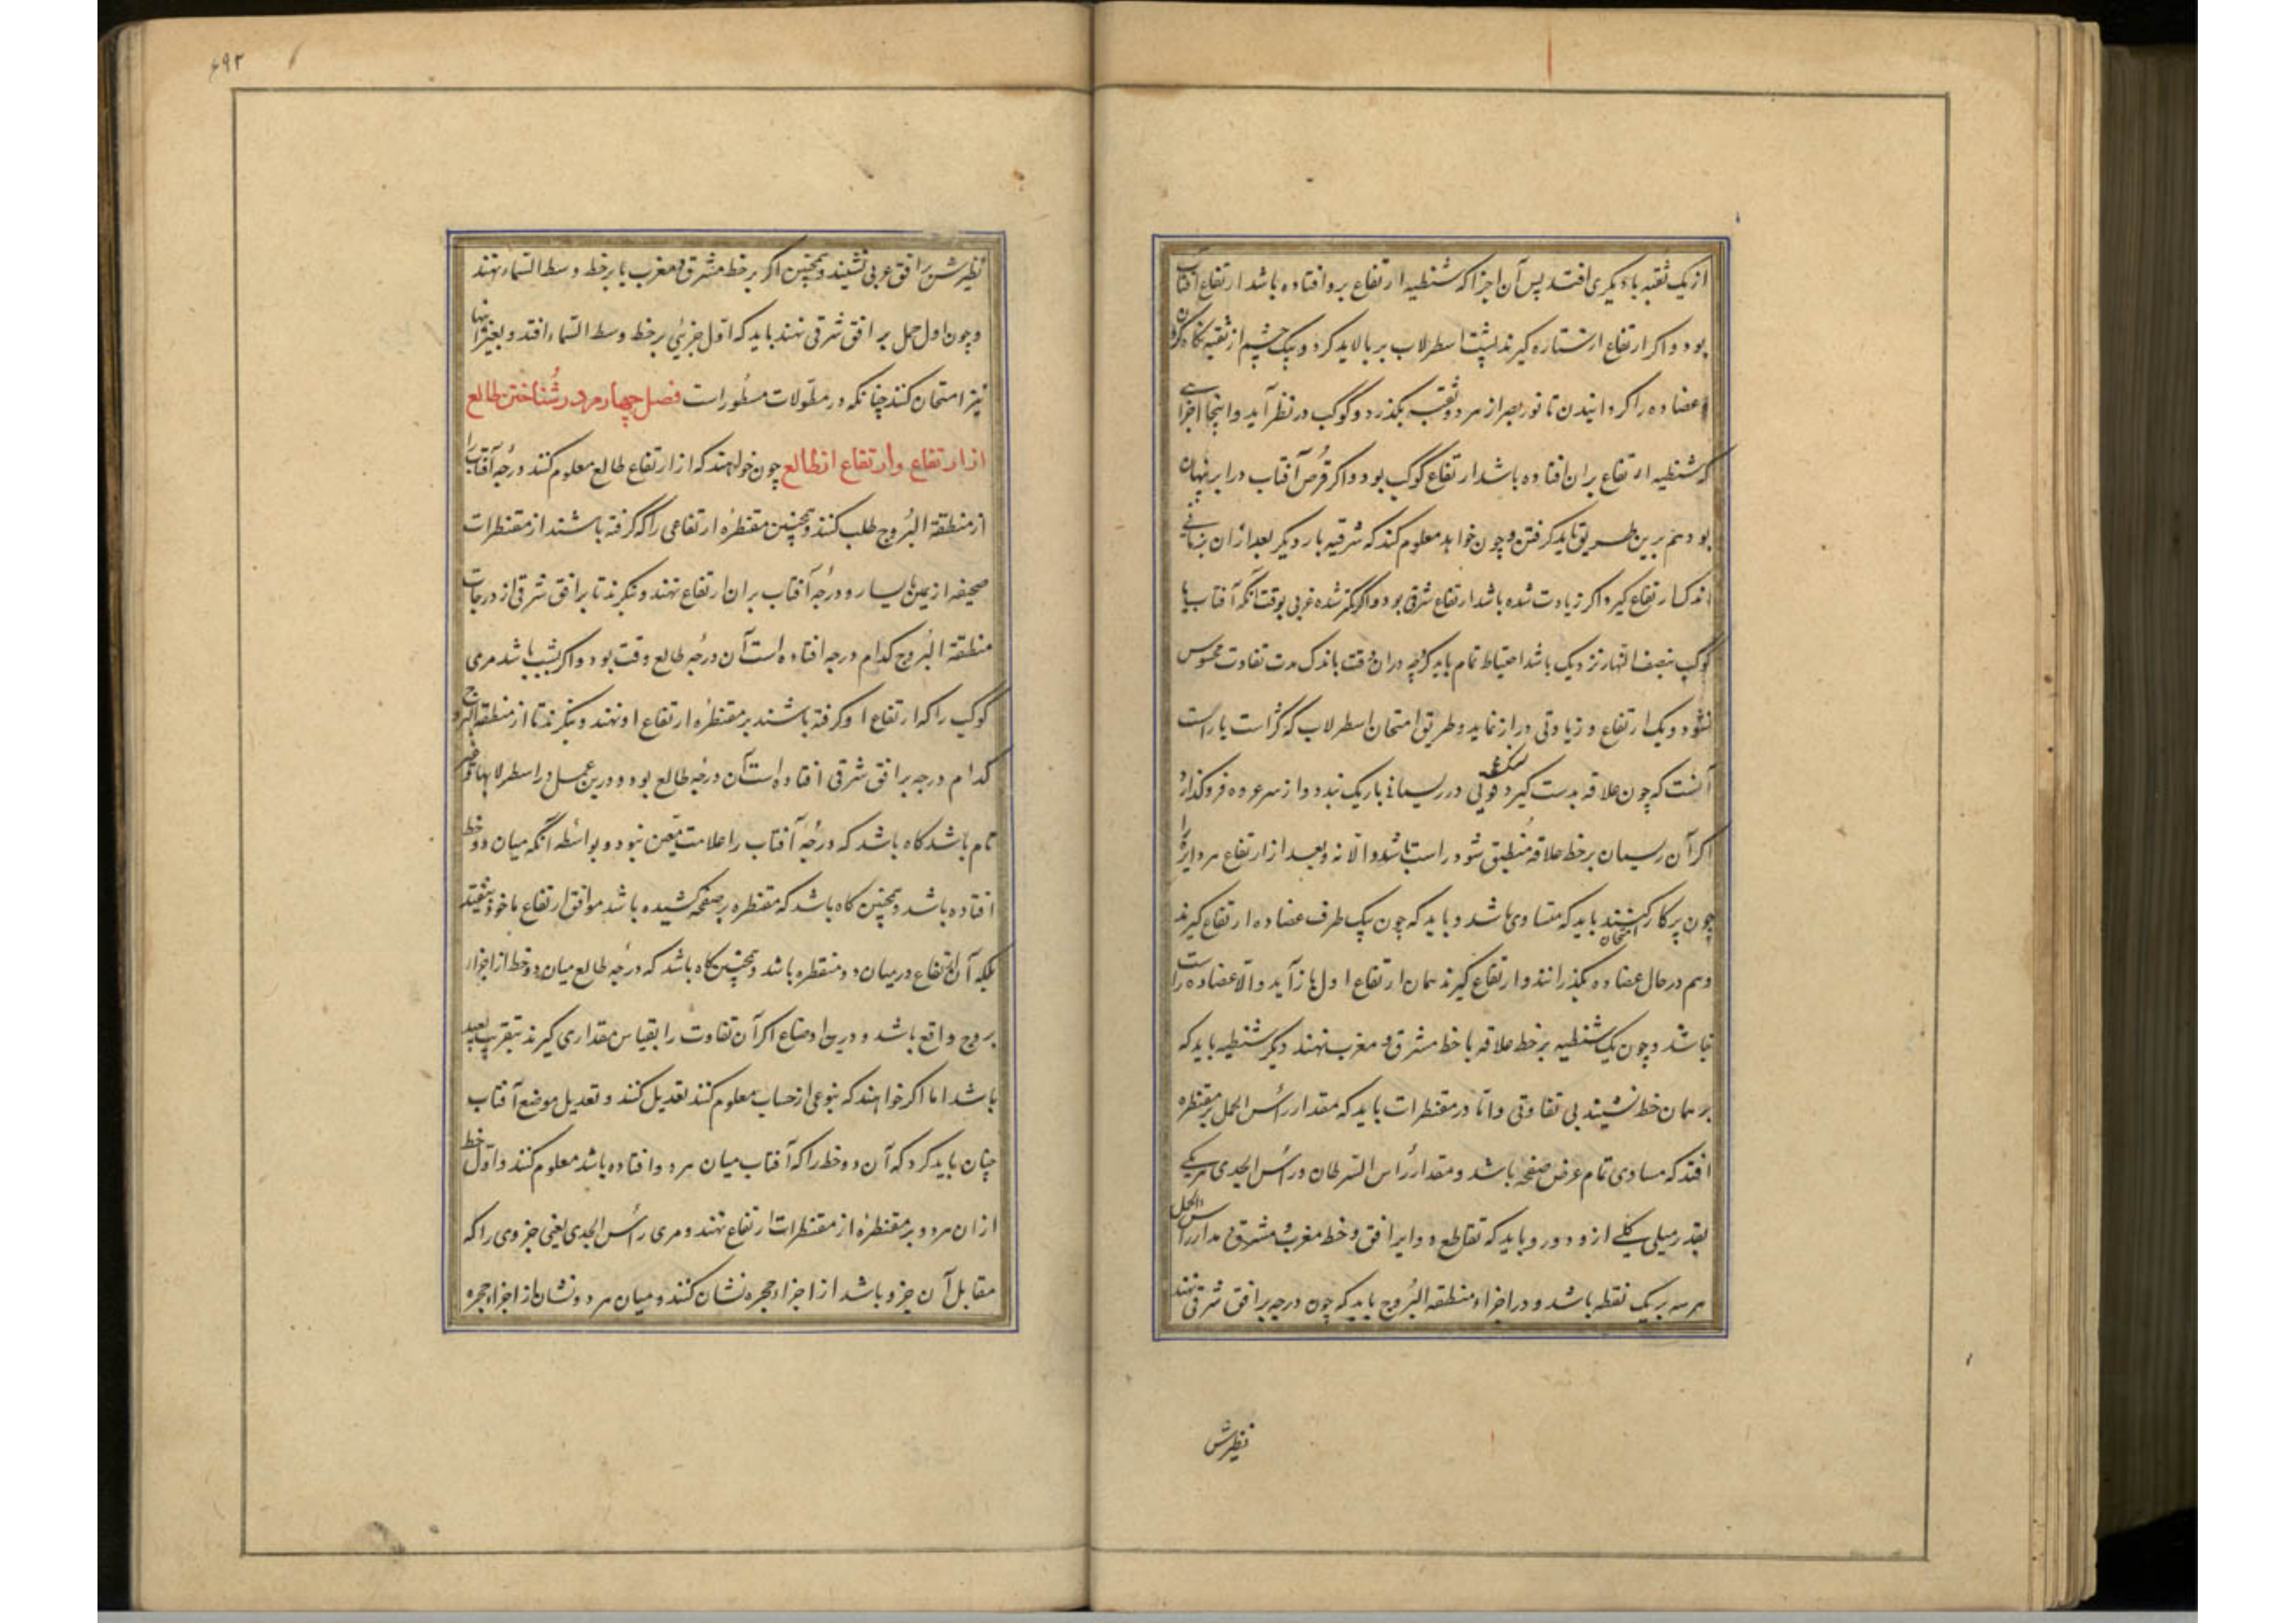 از یک ثقبه با دیگری افتد پس آن اجزا که شنطیه ارتفاع برو افتاده باشد ارتفاع آفتاب
بود و اکر ارتفاع از ستاره کیرند پشت اسطرلاب بر بالا باید کرد و بیک چشم از ثقبه نکاه کردن
عضاده را کردانیدن تا نور بصر از هر دو ثقبه بکذرد و کوکب در نظر آید و اینجا اجزای
که شنطیه ارتفاع بران افتاده باشد ارتفاع کوکب بود و اکر قرص آفتاب در ابر پنهان
بود هم برین طریق باید کرفتن و چون خواهد معلوم کند که شرقیه بار دیکر بعد از آن بزمانی
اندک ارتفاع کیرد اکر زیادت شده باشد ارتفاع شرقی بود و اکر کمتر شده غربی بوقت آنکه آفتاب یا
کوکب بنصف النهار نزدیک باشد احتیاط تمام باید کرد چه دران وقت باندک مدت تفاوت محسوس
نشود و یک ارتفاع و زیادتی دراز نماید و طریق امتحان اسطرلاب که کژ است یا راست
آنست که چون علاقه بدست کیرد در ریسمانی باریک بندد و از سر عروه فرو کذارد
اکر آن ریسمان بر خط علاقه منطبق شود راست باشد و الا نه و بعد از ارتفاع هر دایره را
چون پرکار کنند باید که متساوی باشد و باید که چون بیک طرف عضاده ارتفاع کیرند امتحان
و هم در حال عضاده بکذرانند و ارتفاع کیرند همان ارتفاع اول باز آید و الا عضاده راست
نباشد و چون یک شنطیه بر خط علاقه یا خط مشرق و مغرب نهند دیکر شنطیه باید که
بر همان خط نشیند بی تفاوتی و اما در مقنطرات باید که مقدار رأس الحمل بر مقنطره
افتد که مساوی تمام عرض صفحه باشد و مقدار رأس السرطان و رأس الجدی هر یکی
بقدر میلی کلی ازو دور و باید که تقاطع دوایر افق و خط مغرب و مشرق و مدار رأس الحمل
هر سه بر یک نقطه باشد و در اجزاء منطقة البروج باید که چون درجه بر افق شرقی نهند
نظیرش
۶۹۲
نظیرش بر افق غربی نشیند و همچنین اکر بر خط مشرق و مغرب یا بر خط وسط السماء نهند
و چون اول حمل بر افق شرقی نهند باید که اول جزئی بر خط وسط السماء افتد و بغیر اینها
نیز امتحان کنند چنانکه در مطولات مسطور است فصل چهارم در شناختن طالع
از ارتفاع وارتفاع از طالع چون خواهند که از ارتفاع طالع معلوم کنند درجه آفتاب را
از منطقة البروج طلب کنند و همچنین مقنطره ارتفاعی را که کرفته باشند از مقنطرات
صحیفه از یمین یا یسار و درجه آفتاب بران ارتفاع نهند و بنکرند تا بر افق شرقی از درجات
منطقة البروج کدام درجه افتاده است آن درجه طالع وقت بود و اکر بشب باشد مری
کوکب را که ارتفاع او کرفته باشند بر مقنطره ارتفاع او نهند و بنکرند تا از منطقة البروج
کدام درجه بر افق شرقی افتاده است آن درجه طالع بود و درین عمل در اسطرلابهای غیر
تام باشد کاه باشد که درجه آفتاب را علامت معین نبود و بواسطه آنکه میان دو خط
افتاده باشد و همچنین کاه باشد که مقنطره بر صفحه کشیده باشد موافق ارتفاع ماخوذ نیفتد
بلکه آن ارتفاع در میان دو مقنطره باشد و همچنین کاه باشد که درجه طالع میان دو خط از اجزاء
بروج واقع باشد و درین اوضاع اکر آن تفاوت را بقیاس مقداری کیرند بتقریب بعید
باشد اما اکر خواهند که بنوعی از حساب معلوم کنند تعدیل کنند و تعدیل موضع آفتاب
چنان باید کرد که آن دو خط را که آفتاب میان هر دو افتاده باشد معلوم کنند و اول خط
ازان هر دو بر مقنطره از مقنطرات ارتفاع نهند و مری رأس الجدی یعنی جزوی را که
مقابل آن جزو باشد از اجزاء حجره نشان کنند و میان هر دو نشان از اجزاء حجره